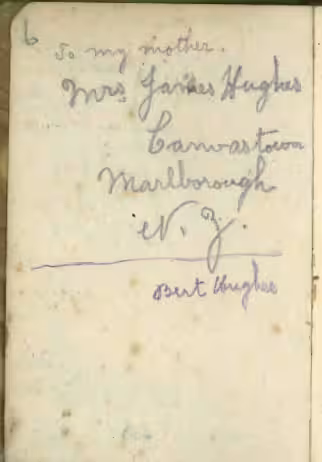 6
To my mother.
Mrs James Hughes
Canvastown
Marlborough
N. Z.
Bert Hughes